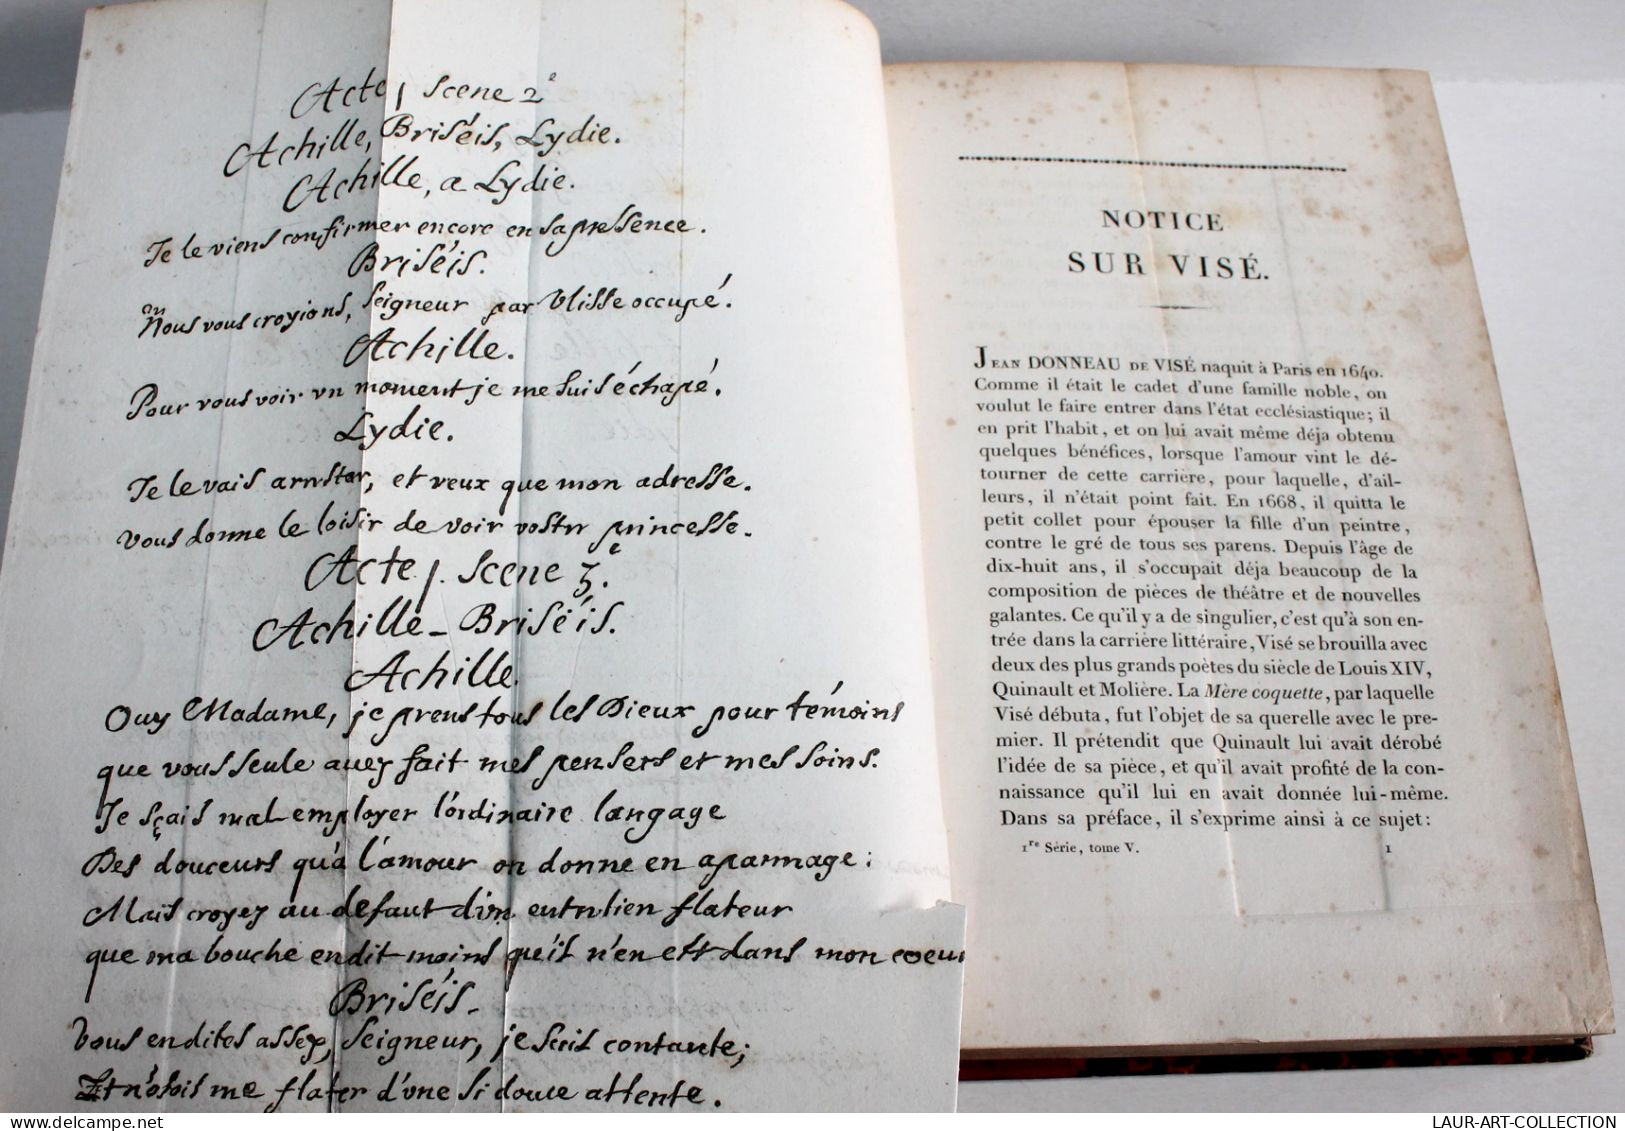 Acte 1 scene 2e
Achille, Briséis, Lydie.
Achille, a Lydie.
Je le viens confirmer encore en sa presence.
Briséis.
Nous vous croyions, seigneur par Ulisse occupé.
Achille.
Pour vous voir vn moment je me suis échapé.
Lydie.
Je le vais arrester, et veux que mon adresse.
vous donne le loisir de voir vostre princesse.
Acte 1. scene 3e.
Achille - Briséis.
Achille.
Ouy Madame, je prens tous les Dieux pour témoins
que vous seule auez fait mes pensers et mes soins.
Je sçais mal employer l'ordinaire langage
Des douceurs qu'a l'amour on donne en apannage:
Mais croyez au defaut d'vn entretien flateur
que ma bouche en dit moins qu'il n'en est dans mon coeur
Briséis.
Vous en dites assez, seigneur, je suis contante;
Et n'osois me flater d'vne si douce attente.
NOTICE
SUR VISÉ.
JEAN DONNEAU DE VISÉ naquit à Paris en 1640.
Comme il était le cadet d'une famille noble, on
voulut le faire entrer dans l'état ecclésiastique; il
en prit l'habit, et on lui avait même déja obtenu
quelques bénéfices, lorsque l'amour vint le dé-
tourner de cette carrière, pour laquelle, d'ail-
leurs, il n'était point fait. En 1668, il quitta le
petit collet pour épouser la fille d'un peintre,
contre le gré de tous ses parens. Depuis l'âge de
dix-huit ans, il s'occupait déja beaucoup de la
composition de pièces de théâtre et de nouvelles
galantes. Ce qu'il y a de singulier, c'est qu'à son en-
trée dans la carrière littéraire, Visé se brouilla avec
deux des plus grands poètes du siècle de Louis XIV,
Quinault et Molière. La Mère coquette, par laquelle
Visé débuta, fut l'objet de sa querelle avec le pre-
mier. Il prétendit que Quinault lui avait dérobé
l'idée de sa pièce, et qu'il avait profité de la con-
naissance qu'il lui en avait donnée lui-même.
Dans sa préface, il s'exprime ainsi à ce sujet:
1re Série, tome V. 1
delcampe.net
LAUR-ART-COLLECTION